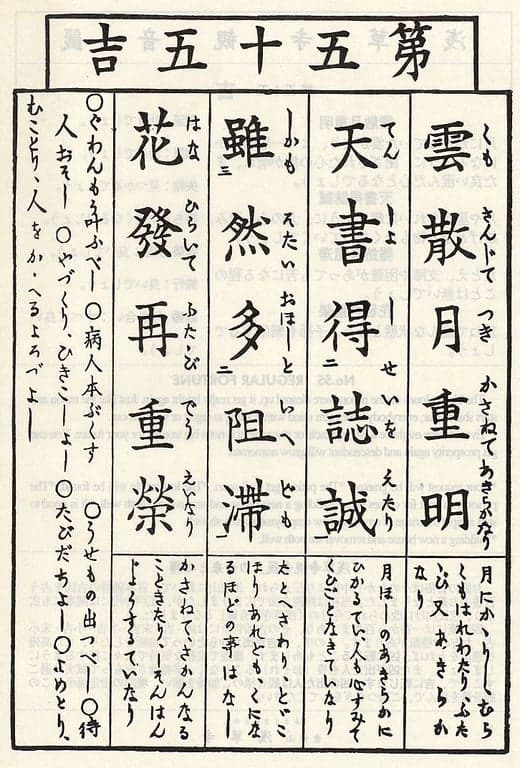 第五十五吉
くも さんじて つき かさねてあきらかなり
雲散月重明
てんしよ しせいを えたり
天書得二誌誠一
しかも そたいおほしと いへども
雖三然多二阻滞一
はな ひらいて ふたゝび ぢう えいなり
花發再重榮
月にかゝりしむら
くもはれわたりふた
ゝび又あきらか
な
月ほしのあきらかに
ひかるてい、人も心すみて
ひごとなきていなり
たとへさわりとどこ
ほりあれども、くにな
るほどの事はな
し
かさねて、さかんなる
こときたり、しそんはん
じようするていなり
〇ぐわんもう叶ふべし〇病人本ぶくす〇うせもの出つべし〇待
人おそし〇やづくり、ひきこしよし〇たびだちよし〇よめとり、
むことり、人をかゝへるよろづよし